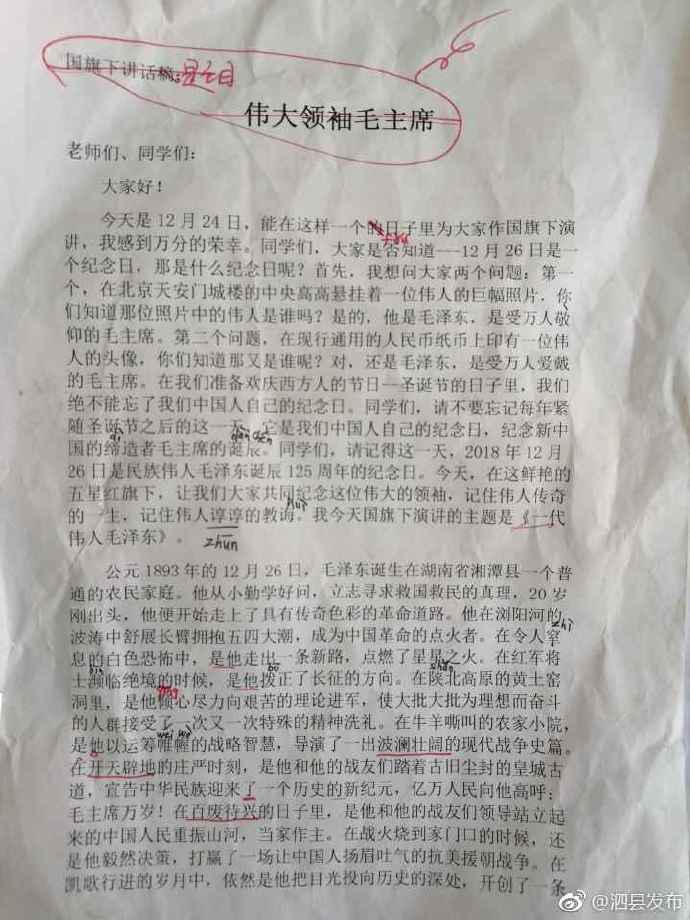 国旗下讲话稿:
伟大领袖毛主席
老师们、同学们:
大家好!
今天是12月24日,能在这样一个的日子里为大家作国旗下演
讲,我感到万分的荣幸。同学们,大家是否知道---12月26日是一
个纪念日,那是什么纪念日呢?首先,我想问大家两个问题:第一
个,在北京天安门城楼的中央高高悬挂着一位伟人的巨幅照片,你
们知道那位照片中的伟人是谁吗?是的,他是毛泽东,是受万人敬
仰的毛主席。第二个问题,在现行通用的人民币纸币上印有一位伟
人的头像,你们知道那又是谁呢?对,还是毛泽东,是受万人爱戴
的毛主席。在我们准备欢庆西方人的节日—圣诞节的日子里,我们
绝不能忘了我们中国人自己的纪念日。同学们,请不要忘记每年紧
随圣诞节之后的这一天,它是我们中国人自己的纪念日,纪念新中
dì dàn chén
国的缔造者毛主席的诞辰。同学们,请记得这一天,2018年12月
26日是民族伟人毛泽东诞辰125周年的纪念日。今天,在这鲜艳的
五星红旗下,让我们大家共同纪念这位伟大的领袖,记住伟人传奇
huì
的一生,记住伟人谆谆的教诲。我今天国旗下演讲的主题是《一代
zhūn
伟人毛泽东》。
公元1893年的12月26日,毛泽东诞生在湖南省湘潭县一个普
通的农民家庭。他从小勤学好问,立志寻求救国救民的真理,20岁
刚出头,他便开始走上了具有传奇色彩的革命道路。他在浏阳河的
波涛中舒展长臂拥抱五四大潮,成为中国革命的点火者。在令人窒
zhì
息的白色恐怖中,是他走出一条新路,点燃了星星之火。在红军将
bīn bō shǎn
士濒临绝境的时候,是他拨正了长征的方向。在陕北高原的黄土窑
洞里,是他倾心尽力向艰苦的理论进军,使大批大批为理想而奋斗
的人群接受了一次又一次特殊的精神洗礼。在牛羊嘶叫的农家小院,
wéi wò
是他以运筹帷幄的战略智慧,导演了一出波澜壮阔的现代战争史篇。
在开天辟地的庄严时刻,是他和他的战友们踏着古旧尘封的皇城古
道,宣告中华民族迎来了一个历史的新纪元,亿万人民向他高呼:
毛主席万岁!在百废待兴的日子里,是他和他的战友们领导站立起
来的中国人民重振山河,当家作主。在战火烧到家门口的时候,还
是他毅然决策,打赢了一场让中国人扬眉吐气的抗美援朝战争。在
凯歌行进的岁月中,依然是他把目光投向历史的深处,开创了一条
@泗县发布